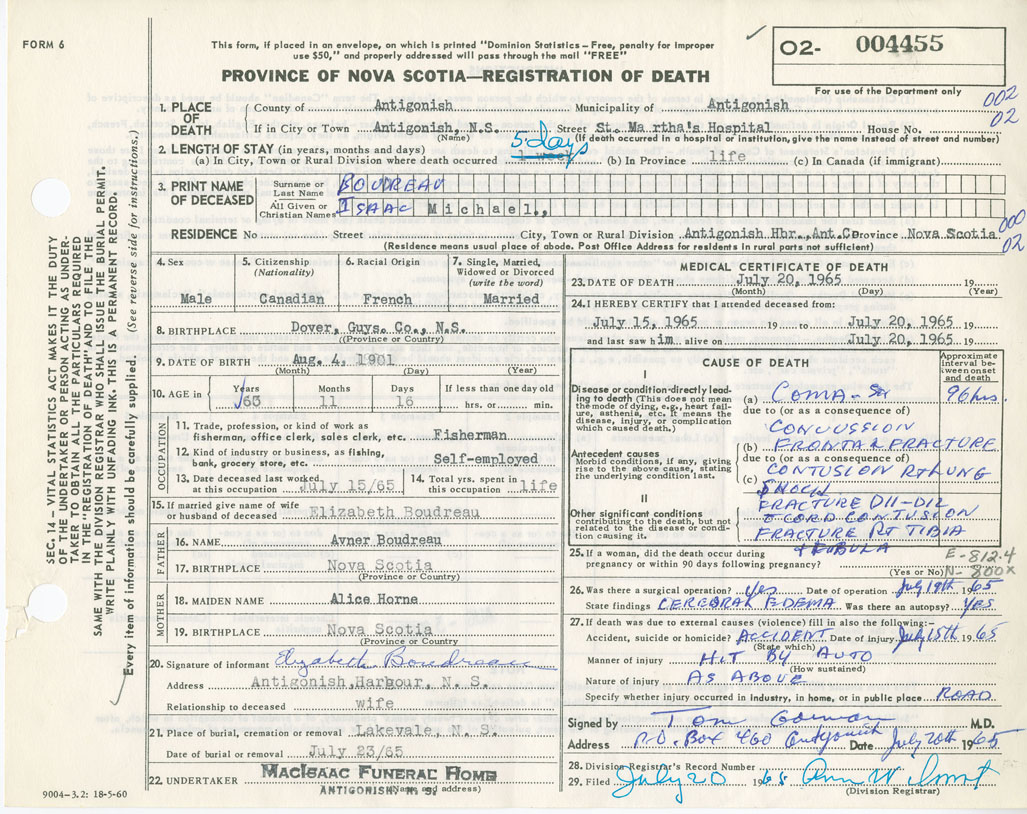 FORM 6
This form, if placed in an envelope, on which is printed "Dominion Statistics – Free, penalty for improper
use $50," and properly addressed will pass through the mail "FREE"
PROVINCE OF NOVA SCOTIA—REGISTRATION OF DEATH
02- 004455
For use of the Department only
002
02
1. PLACE OF DEATH
County of Antigonish Municipality of Antigonish
If in City or Town Antigonish, N.S. Street St. Martha's Hospital House No.
(Name) (If death occurred in a hospital or institution, give the name instead of street and number)
2. LENGTH OF STAY (in years, months and days)
5 days
(a) In City, Town or Rural Division where death occurred 1 week (b) In Province life (c) In Canada (if immigrant)
3. PRINT NAME OF DECEASED
Surname or Last Name BOUDREAU
All Given or Christian Names ISAAC Michael,,
RESIDENCE No Street City, Town or Rural Division Antigonish Hbr., Ant.Co Province Nova Scotia
(Residence means usual place of abode. Post Office Address for residents in rural parts not sufficient)
000
02
4. Sex
Male
5. Citizenship
(Nationality)
Canadian
6. Racial Origin
French
7. Single, Married,
Widowed or Divorced
(write the word)
Married
8. BIRTHPLACE Dover, Guys. Co., N.S.
((Province or Country)
9. DATE OF BIRTH Aug. 4, 1901
(Month) (Day) (Year)
10. AGE in
Years Months Days If less than one day old
63 11 16 hrs. or min.
OCCUPATION
11. Trade, profession, or kind of work as
fisherman, office clerk, sales clerk, etc. Fisherman
12. Kind of industry or business, as fishing,
bank, grocery store, etc. Self-employed
13. Date deceased last worked
at this occupation July 15/65
14. Total yrs. spent in
this occupation life
15. If married give name of wife
or husband of deceased Elizabeth Boudreau
FATHER
16. NAME Avner Boudreau
17. BIRTHPLACE Nova Scotia
(Province or Country)
MOTHER
18. MAIDEN NAME Alice Horne
19. BIRTHPLACE Nova Scotia
(Province or Country
20. Signature of informant Elizabeth Boudreau
Address Antigonish,Harbour, N. S.
Relationship to deceased wife
21. Place of burial, cremation or removal Lakevale, N. S.
Date of burial or removal July 23/65
22. UNDERTAKER MacIsaac Funeral Home
ANTIGONISH, N. S.
(Name and address)
9004-3.2: 18-5-60
MEDICAL CERTIFICATE OF DEATH
23. DATE OF DEATH July 20, 1965 19
(Month) (Day) (Year)
24. I HEREBY CERTIFY that I attended deceased from:
July 15, 1965 19 to July 20, 1965 19
and last saw him alive on July 20, 1965 19
CAUSE OF DEATH
Approximate
interval be-
tween onset
and death
I
Disease or condition directly lead-
ing to death (This does not mean
the mode of dying, e.g., heart fail-
ure, asthenia, etc. It means the
disease, injury, or complication
which caused death.)
(a) COMA 96 hrs.
due to (or as a consequence of)
CONCUSSION
(b) FRONTAL FRACTURE
due to (or as a consequence of)
CONTUSION RT LUNG
(c)
SHOCK
Antecedent causes
Morbid conditions, if any, giving
rise to the above cause, stating
the underlying condition last.
II
Other significant conditions
contributing to the death, but not
related to the disease or condi-
tion causing it.
FRACTURE D11-D12
c CORD CONTUSION
FRACTURE RT TIBIA
+ FIBULA
25. If a woman, did the death occur during
pregnancy or within 90 days following pregnancy?
(Yes or No)
E-812.4
N-800X
26. Was there a surgical operation? yes Date of operation July 19th 1965
State findings CEREBRAL EDEMA Was there an autopsy? YES
27. If death was due to external causes (violence) fill in also the following:–
Accident, suicide or homicide? ACCIDENT Date of injury July 15th 1965
(State which)
Manner of injury HIT BY AUTO
(How sustained)
Nature of injury AS ABOVE
Specify whether injury occurred in industry, in home, or in public place ROAD
Signed by Tom Gorman M.D.
Address P.O. Box 460 Antigonish Date July 20th 1965
28. Division Registrar's Record Number
29. Filed July 20 1965
(Division Registrar)
SEC. 14 – VITAL STATISTICS ACT MAKES IT THE DUTY
OF THE UNDERTAKER OR PERSON ACTING AS UNDER-
TAKER TO OBTAIN ALL THE PARTICULARS REQUIRED
IN THE "REGISTRATION OF DEATH" AND TO FILE THE
SAME WITH THE DIVISION REGISTRAR WHO SHALL ISSUE THE BURIAL PERMIT.
WRITE PLAINLY WITH UNFADING INK. THIS IS A PERMANENT RECORD.
Every item of information should be carefully supplied. (See reverse side for instructions.)